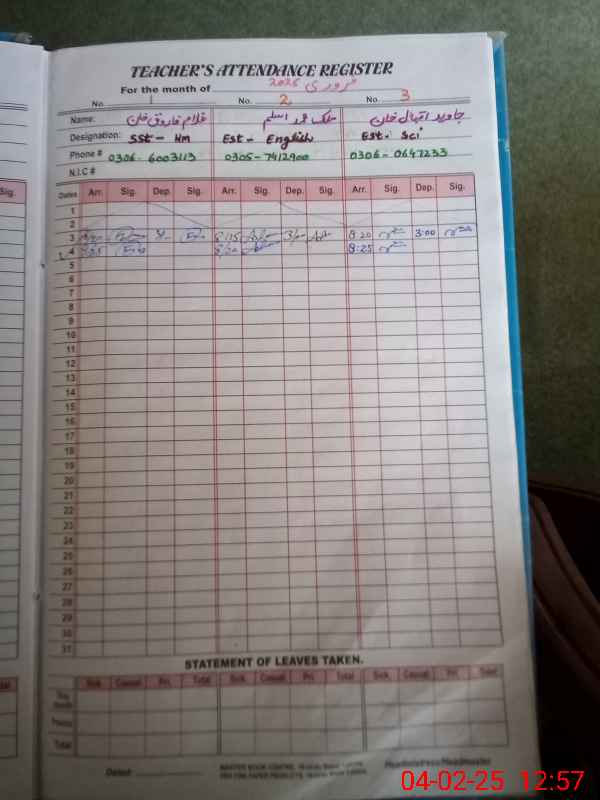 TEACHER'S ATTENDANCE REGISTER
For the month of فروری 2025
No. 1 No. 2 No. 3
Name: غلام فاروق خان ملک محمد اسلم جاوید اقبال خان
Designation: SST - Hm Est - English Est. Sci
Phone # 0306-6003113 0305-7412900 0306-0647233
N.I.C #
Sig. Dates Arr. Sig. Dep. Sig. Arr. Sig. Dep. Sig. Arr. Sig. Dep. Sig.
1
2
3 8:15 8:20 3:00
4 8:25
5
6
7
8
9
10
11
12
13
14
15
16
17
18
19
20
21
22
23
24
25
26
27
28
29
30
31
STATEMENT OF LEAVES TAKEN.
Sick. Casual. Pri. Total Sick. Casual. Pri. Total Sick. Casual. Pri. Total
This month
Previous
Total
Dated: Headmistress/Headmaster
04-02-25 12:57